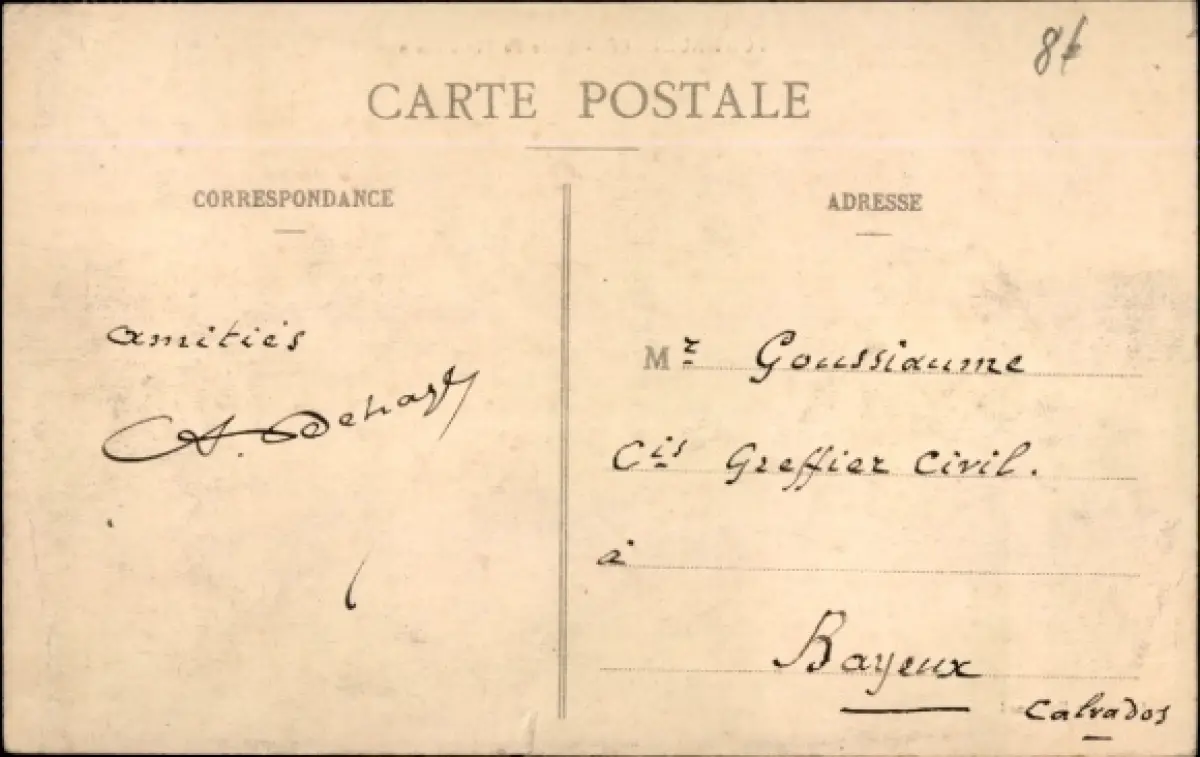 CARTE POSTALE
CORRESPONDANCE
amitiés
A. Dehast
ADRESSE
Mr Goussiaume
Cis Greffier Civil.
à
Bayeux
Calvados